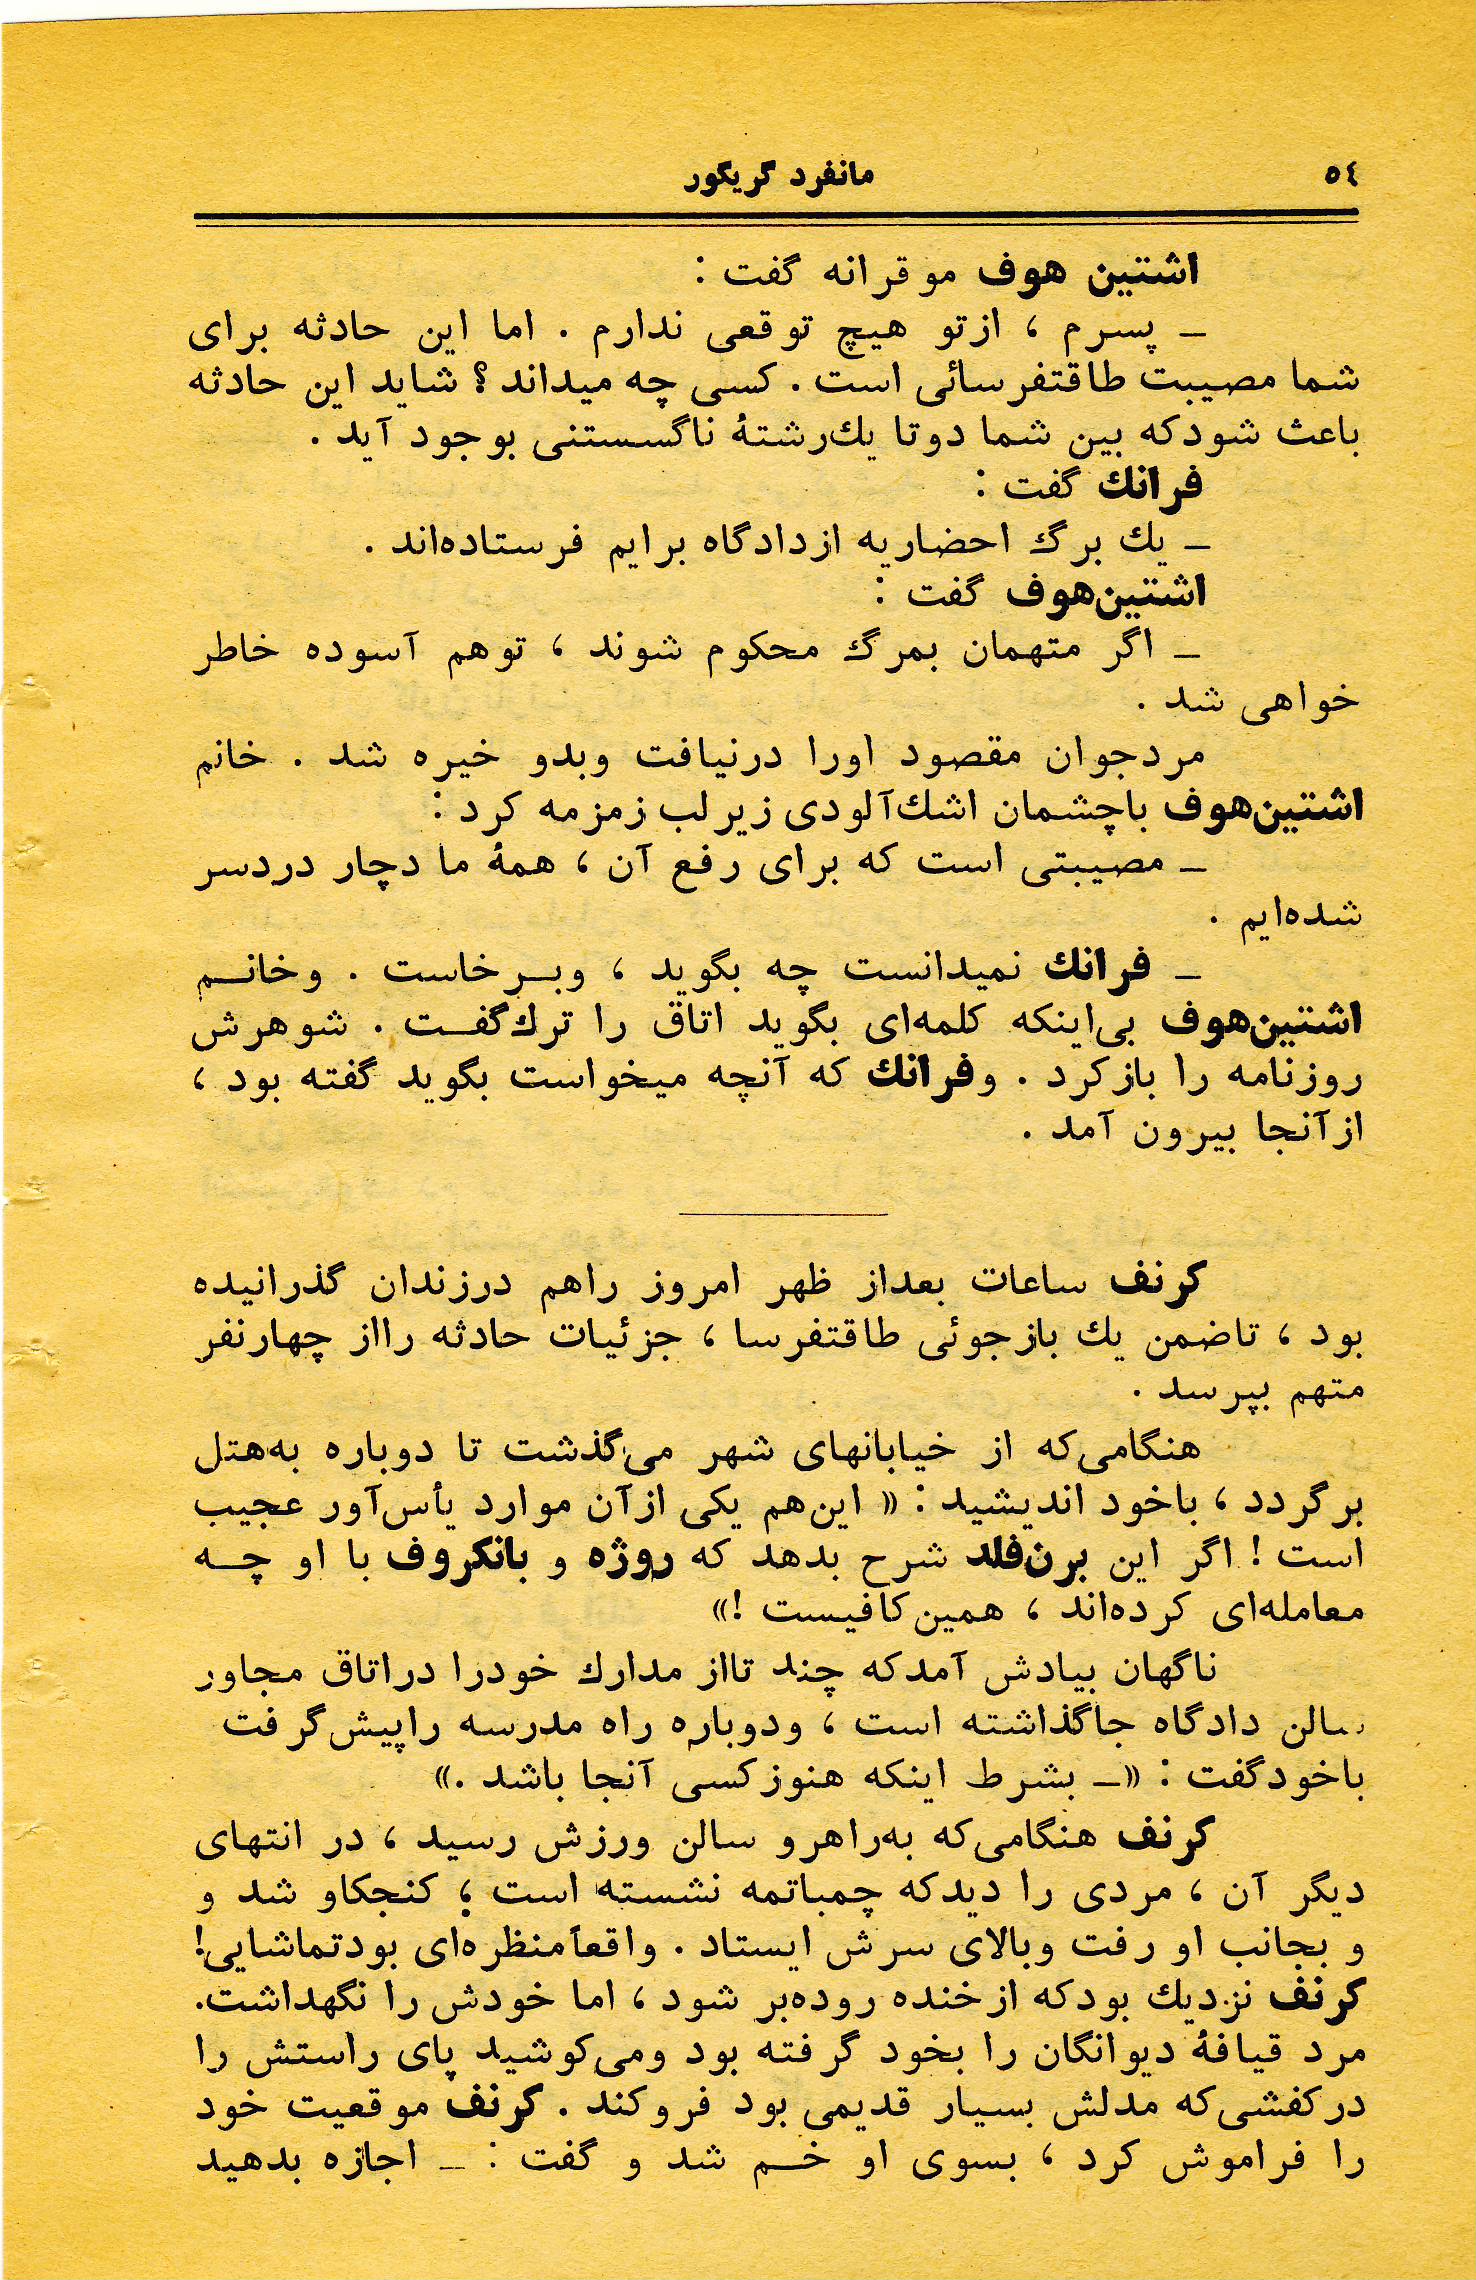 ٥٤
مانفرد گریگور
اشتین هوف موقرانه گفت :
ـ پسرم ، ازتو هیچ توقعی ندارم . اما این حادثه برای
شما مصیبت طاقتفرسائی است . کسی چه میداند ؟ شاید این حادثه
باعث شودکه بین شما دوتا یك‌رشتۀ ناگسستنی بوجود آید .
فرانك گفت :
ـ یك برگ احضاریه ازدادگاه برایم فرستاده‌اند .
اشتین‌هوف گفت :
ـ اگر متهمان بمرگ محکوم شوند ، توهم آسوده خاطر
خواهی شد .
مردجوان مقصود اورا درنیافت وبدو خیره شد . خانم
اشتین‌هوف باچشمان اشك‌آلودی زیرلب زمزمه کرد :
ـ مصیبتی است که برای رفع آن ، همۀ ما دچار دردسر
شده‌ایم .
ـ فرانك نمیدانست چه بگوید ، وبـرخاست . وخانـم
اشتین‌هوف بی‌اینکه کلمه‌ای بگوید اتاق را ترك‌گفـت . شوهرش
روزنامه را بازکرد . وفرانك که آنچه میخواست بگوید گفته بود ،
ازآنجا بیرون آمد .
کرنف ساعات بعداز ظهر امروز راهم درزندان گذرانیده
بود ، تاضمن یك بازجوئی طاقتفرسا ، جزئیات حادثه رااز چهارنفر
متهم بپرسد .
هنگامی‌که از خیابانهای شهر می‌گذشت تا دوباره به‌هتل
برگردد ، باخود اندیشید : « این‌هم یکی ازآن موارد یأس‌آور عجیب
است ! اگر این برن‌فلد شرح بدهد که روژه و بانکروف با او چـه
معامله‌ای کرده‌اند ، همین‌کافیست !»
ناگهان بیادش آمدکه چند تااز مدارك خودرا دراتاق مجاور
سالن دادگاه جاگذاشته است ، ودوباره راه مدرسه راپیش‌گرفت
باخودگفت : «ـ بشرط اینکه هنوزکسی آنجا باشد .»
کرنف هنگامی‌که به‌راهرو سالن ورزش رسید ، در انتهای
دیگر آن ، مردی را دیدکه چمباتمه نشسته است ؛ کنجکاو شد و
و بجانب او رفت وبالای سرش ایستاد . واقعاًمنظره‌ای بودتماشایی!
کرنف نزدیك بودکه ازخنده روده‌بر شود ، اما خودش را نگهداشت.
مرد قیافۀ دیوانگان را بخود گرفته بود ومی‌کوشید پای راستش را
درکفشی‌که مدلش بسیار قدیمی بود فروکند . کرنف موقعیت خود
را فراموش کرد ، بسوی او خـم شد و گفت : ـ اجازه بدهید